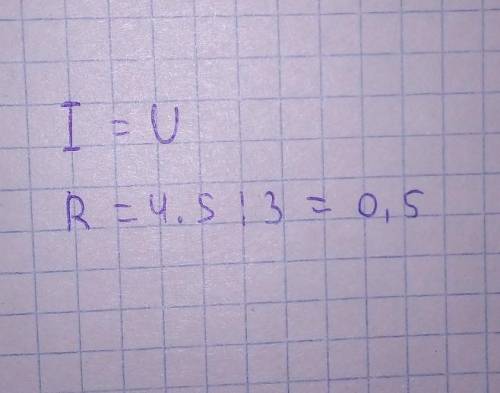 I = U
R = 4.5 | 3 = 0,5